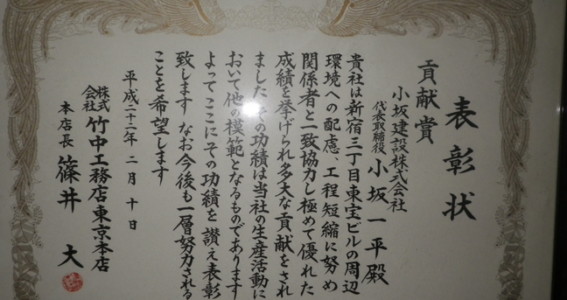 表彰状
貢献賞
小坂建設株式会社
代表取締役 小坂一平殿
貴社は新宿三丁目東宝ビルの周辺
環境への配慮、工程短縮に努め
関係者と一致協力し極めて優れた
成績を挙げられ多大な貢献をされ
ました その功績は当社の生産活動に
おいて他の模範となるものであります
よってここにその功績を讃え表彰
致します なお今後も一層努力される
ことを希望します
平成二十二年二月十日
株式会社 竹中工務店東京本店
本店長 篠井 大